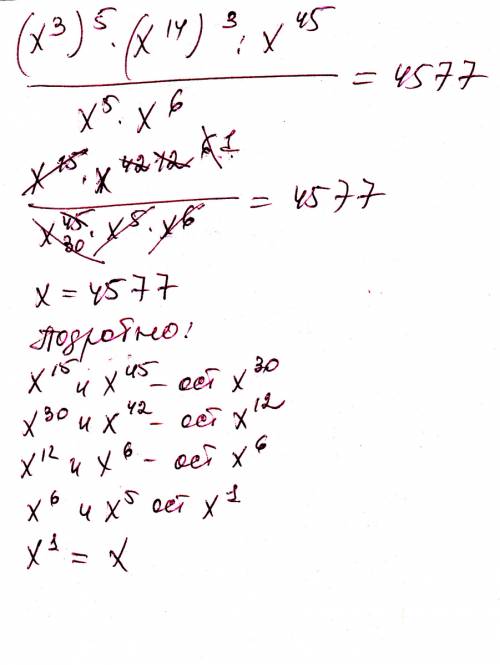 (x³)⁵ · (x¹⁴)³ : x⁴⁵
= 4577
x⁵ · x⁶
x¹⁵ · x⁴² ¹² ⁶ ¹
= 4577
x⁴⁵ ³⁰ · x⁵ · x⁶
x = 4577
Подробно!
x¹⁵ и x⁴⁵ – ост x³⁰
x³⁰ и x⁴² – ост x¹²
x¹² и x⁶ – ост x⁶
x⁶ и x⁵ ост x¹
x¹ = x